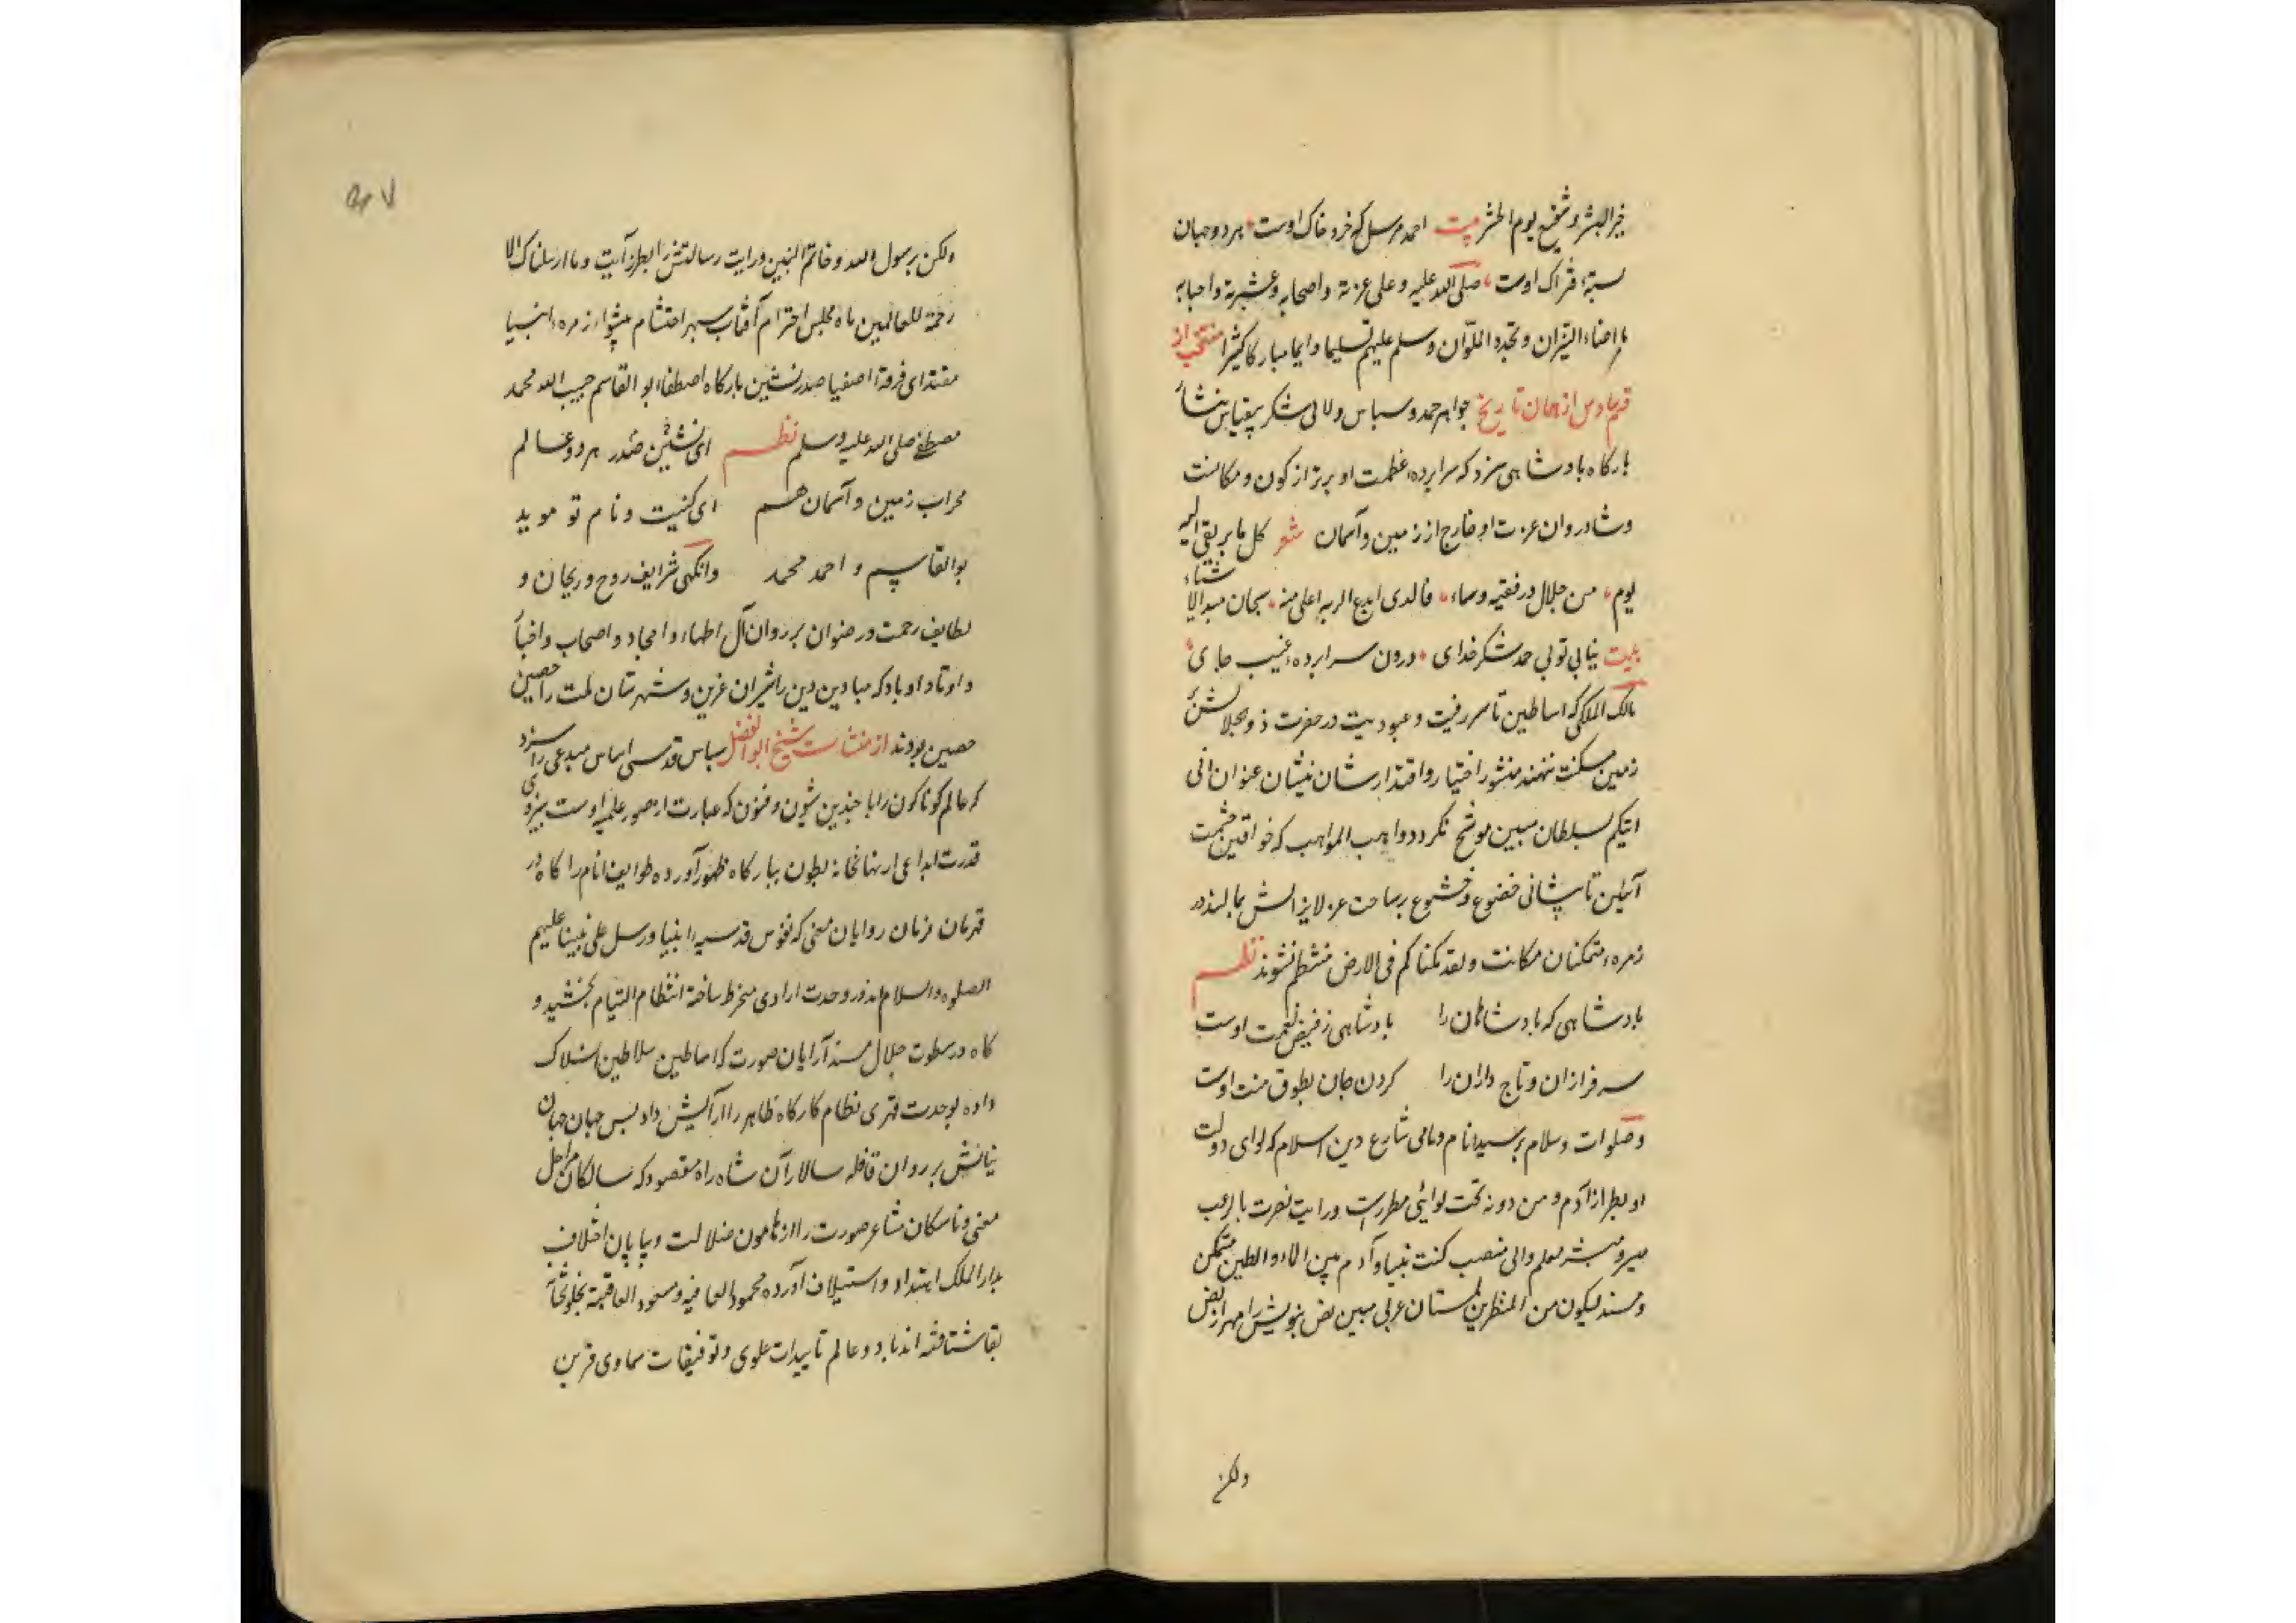 خیر البشر و شفیع یوم الحشر بیت احمد مرسل که خرد خاک اوست هر دو جهان
بستهٔ فتراک اوست صلی الله علیه و علی عترته و اصحابه و عشیرته و احبابه
ما اضاء النیران و تجدد الملوان و سلم علیهم تسلیما دایما مبارکا کثیرا منتخب از
از همان تاریخ جواهر حمد و سپاس و لالی شکر بیقیاس
بارکاه بادشاهی سزد که سرابردهٔ عظمت او برتر از کون و مکانست
و شادروان عزت او خارج از زمین و آسمان شعر کل ما یرتقی الیه
یوم من جلال و رفعة و سماء فالذی ابدع البریة اعلی منه سبحان مبدع الاشیاء
بیت نیابی تو بی حمد و شکر خدای درون سرابردهٔ غیب جای
مالک الملکی که اساطین تا سر رقیت و عبودیت در حضرت ذوالجلالش بر
زمین مسکنت ننهند منشور اختیار و اقتدارشان بنشان عنوان انی
اتیکم بسلطان مبین موشح نکردد واهب المواهب که خواقین حشمت
آئین تا پیشانی خضوع و خشوع بر ساحت عز لایزالش نمالند در
زمرهٔ متمکنان مکانت ولقد مکناکم فی الارض منتظم نشوند نظم
بادشاهی که بادشاهان را بادشاهی ز فیض نعمت اوست
سرفرازان و تاج داران را کردن جان بطوق منت اوست
و صلوات و سلام بر سید انام و حامی شارع دین اسلام که لوای دولت
او بطراز آدم و من دونه تحت لوائی مطرزست و رایت نصرت بالرعب
مسیرة شهر معلم والی منصب کنت نبیا و آدم بین الماء و الطین متمکن
و مسند لیکون من المنذرین بلسان عربی مبین نص نبوتش را مهر از نص
ولکن
ولکن رسول الله و خاتم النبیین و رایت رسالتش را طراز آیت و ما ارسلناک الا
رحمة للعالمین ماه مجلس احترام آفتاب سپهر احتشام پیشوای زمرهٔ انبیا
مقتدای فرقهٔ اصفیا صدرنشین بارکاه اصطفا ابو القاسم حبیب الله محمد
مصطفی صلی الله علیه وسلم نظم ای شه نشین صدر هر دو عالم
محراب زمین و آسمان هم ای کنیت و نام تو موید
بوالقاسم و احمد محمد وانکهی شرایف روح و ریحان و
لطایف رحمت و رضوان بر روان آل اطهار و امجاد و اصحاب و اخیار
و اوتاد او باد که میادین دین را شیران عرین و شهرستان ملت را حصین
حصین بودند از منشات شیخ ابو الفضل سپاس قدسی اساس مبدعی را سزد
که عالم کوناکون را با چندین شیون و فنون که عبارت از صور علمیه اوست بنیروی
قدرت ابداعی از نهانخانه بطون ببارکاه ظهور آورده طوایف انام را کاه در
قهرمان فرمان روایان معنی که نفوس قدسیه انبیا و رسل علی نبینا علیهم
الصلوة والسلام اند در وحدت ارادی منخرط ساخته انتظام التیام بخشید و
کاه در سطوت جلال مسندآرایان صورت که اساطین سلاطین اند انسلاک
داده بوحدت قهری نظام کارکاه ظاهر را آرایش داد بس جهان جهان
نیایش بر روان قافله سالار آن شاه راه مقصود که سالکان مراحل
معنی و ناسکان مشاعر صورت را از هامون ضلالت و بیابان اختلاف
بدارالملک اهتداء و استیلاف آورده محمود العافیه و مسعود العاقبة بخلوتخانه
بقا شتافته اند باد و عالم تاییدات علوی و توفیقات سماوی قرین